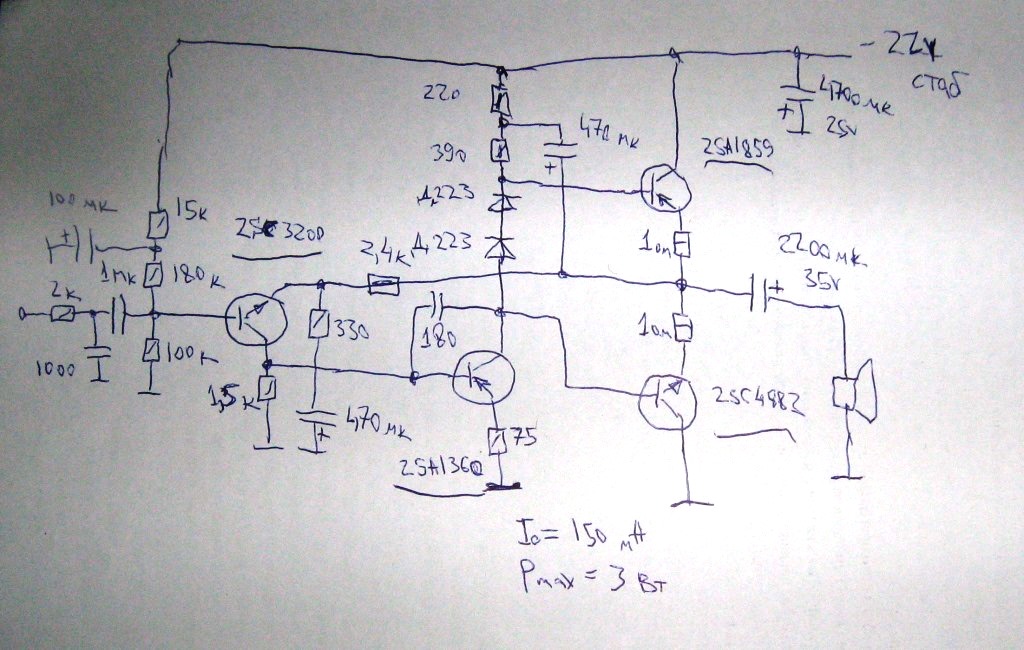 - 22V
стаб
220
4700 мк
25v
470 мк
390
2SA1859
Д223
100 мк
15к
2SC3200
2,4к
Д223
1 ом
2200 мк
35v
1мк
180к
2к
330
180
1 ом
1000
100к
1,5к
470 мк
75
2SC4883
2SA1360
I₀ = 150 мА
Pmax = 3 Вт